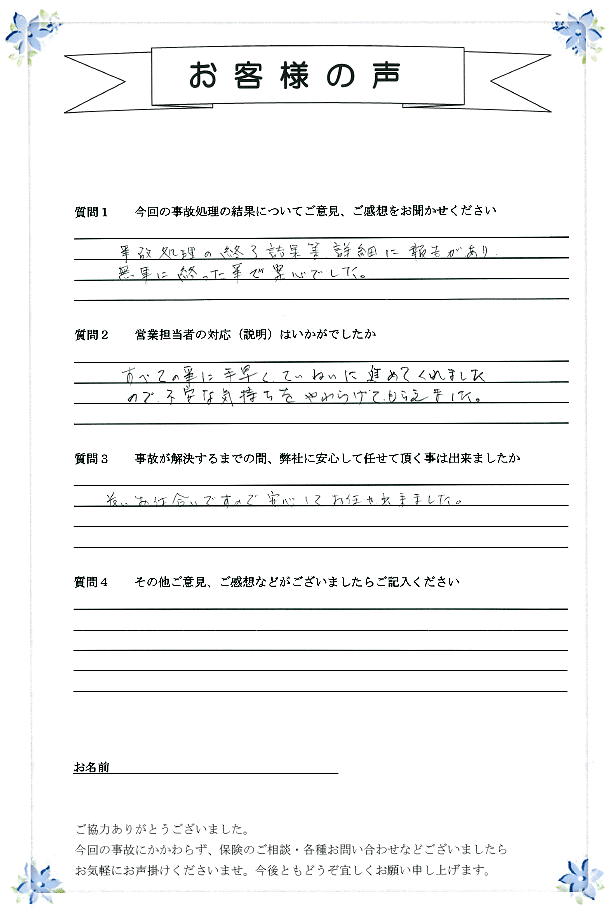 お客様の声
質問１ 今回の事故処理の結果についてご意見、ご感想をお聞かせください
事故処理の終了結果等詳細に報告があり、
無事に終った事で安心でした。
質問２ 営業担当者の対応（説明）はいかがでしたか
すべての事に手早く、ていねいに進めてくれました
ので、不安な気持ちをやわらげてもらえました。
質問３ 事故が解決するまでの間、弊社に安心して任せて頂く事は出来ましたか
長いお付合いですので安心してお任せ出来ました。
質問４ その他ご意見、ご感想などがございましたらご記入ください
お名前
ご協力ありがとうございました。
今回の事故にかかわらず、保険のご相談・各種お問い合わせなどございましたら
お気軽にお声掛けくださいませ。今後ともどうぞ宜しくお願い申し上げます。